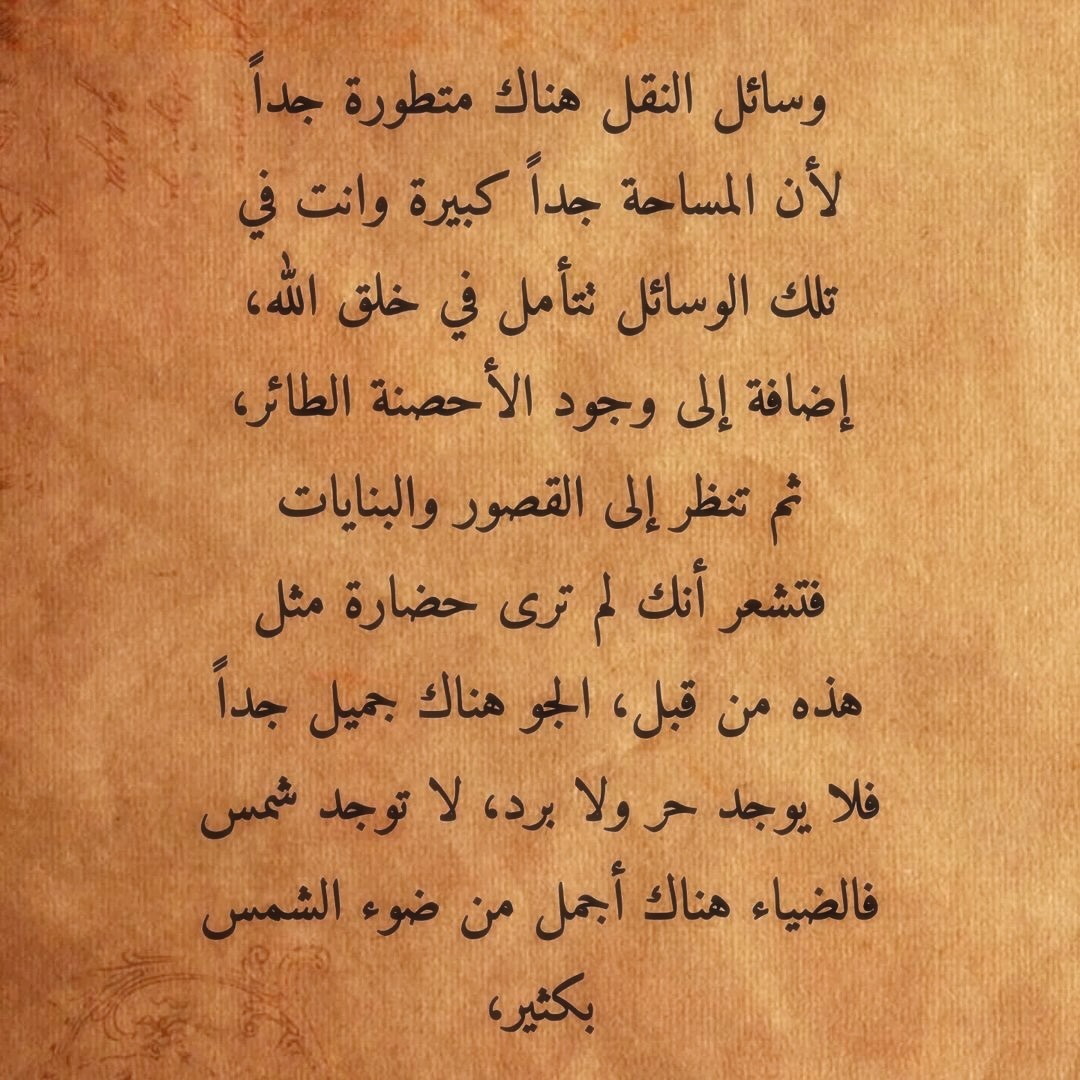 وسائل النقل هناك متطورة جداً
لأن المساحة جداً كبيرة وانت في
تلك الوسائل تتأمل في خلق الله،
إضافة إلى وجود الأحصنة الطائر،
ثم تنظر إلى القصور والبنايات
فتشعر أنك لم ترى حضارة مثل
هذه من قبل، الجو هناك جميل جداً
فلا يوجد حر ولا برد، لا توجد شمس
فالضياء هناك أجمل من ضوء الشمس
بكثير،